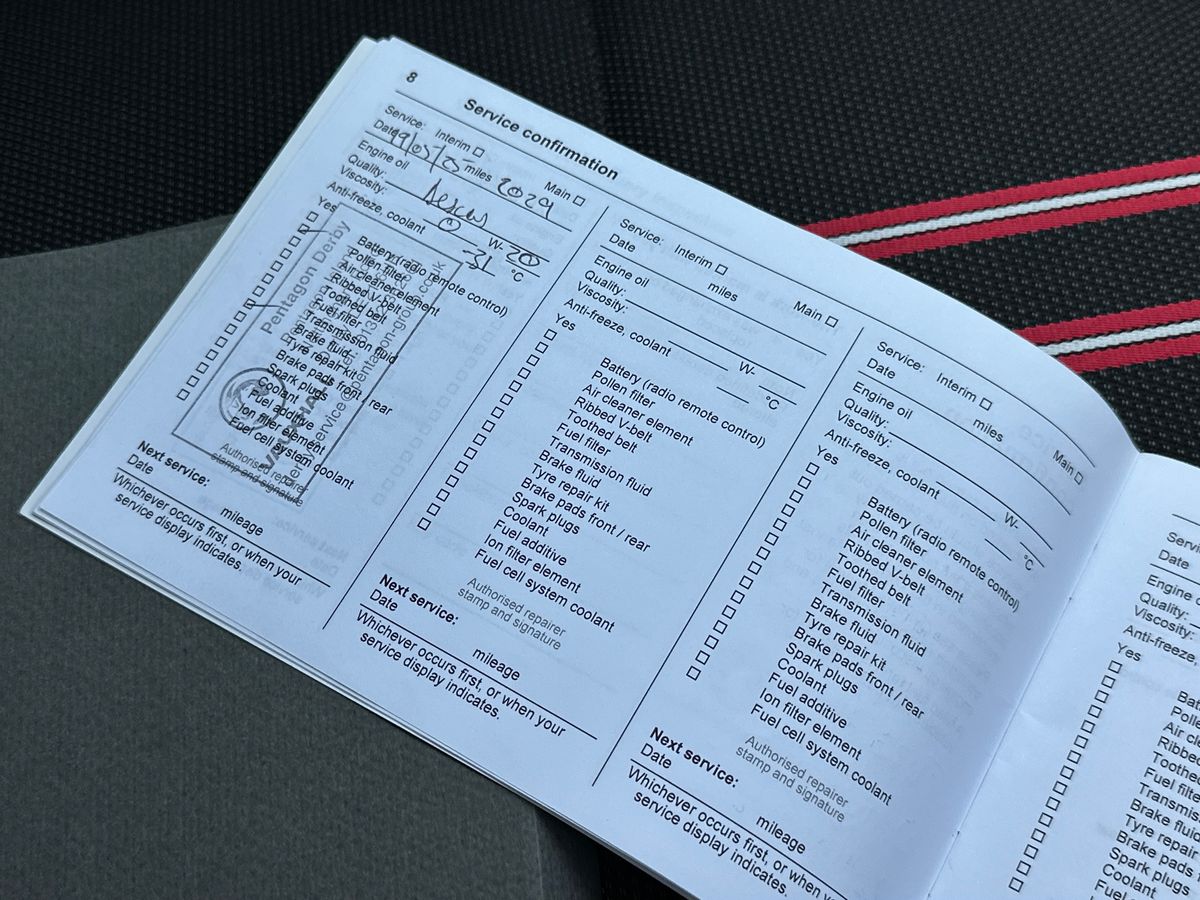 8
Service confirmation
Service: Interim Main
Date miles 2029
Engine oil
Quality:
Viscosity: 0 W- 20
Anti-freeze, coolant -31 °C
Yes
Battery (radio remote control)
Pollen filter
Air cleaner element
Ribbed V-belt
Toothed belt
Fuel filter
Transmission fluid
Brake fluid
Tyre repair kit
Brake pads front / rear
Spark plugs
Coolant
Fuel additive
Ion filter element
Fuel cell system coolant
Pentagon Derby
VAUXHALL
Authorised repairer
stamp and signature
Next service:
Date mileage
Whichever occurs first, or when your
service display indicates.
Service: Interim Main
Date miles
Engine oil
Quality:
Viscosity: W-
Anti-freeze, coolant °C
Yes
Battery (radio remote control)
Pollen filter
Air cleaner element
Ribbed V-belt
Toothed belt
Fuel filter
Transmission fluid
Brake fluid
Tyre repair kit
Brake pads front / rear
Spark plugs
Coolant
Fuel additive
Ion filter element
Fuel cell system coolant
Authorised repairer
stamp and signature
Next service:
Date mileage
Whichever occurs first, or when your
service display indicates.
Service: Interim Main
Date miles
Engine oil
Quality:
Viscosity: W-
Anti-freeze, coolant °C
Yes
Battery (radio remote control)
Pollen filter
Air cleaner element
Ribbed V-belt
Toothed belt
Fuel filter
Transmission fluid
Brake fluid
Tyre repair kit
Brake pads front / rear
Spark plugs
Coolant
Fuel additive
Ion filter element
Fuel cell system coolant
Authorised repairer
stamp and signature
Next service:
Date mileage
Whichever occurs first, or when
service display indicates.
Date
Engine
Quality:
Viscosity:
Anti-freeze,
Yes
Fuel
Brake fluid
Tyre repair
Brake pads
Spark plugs
Coolant